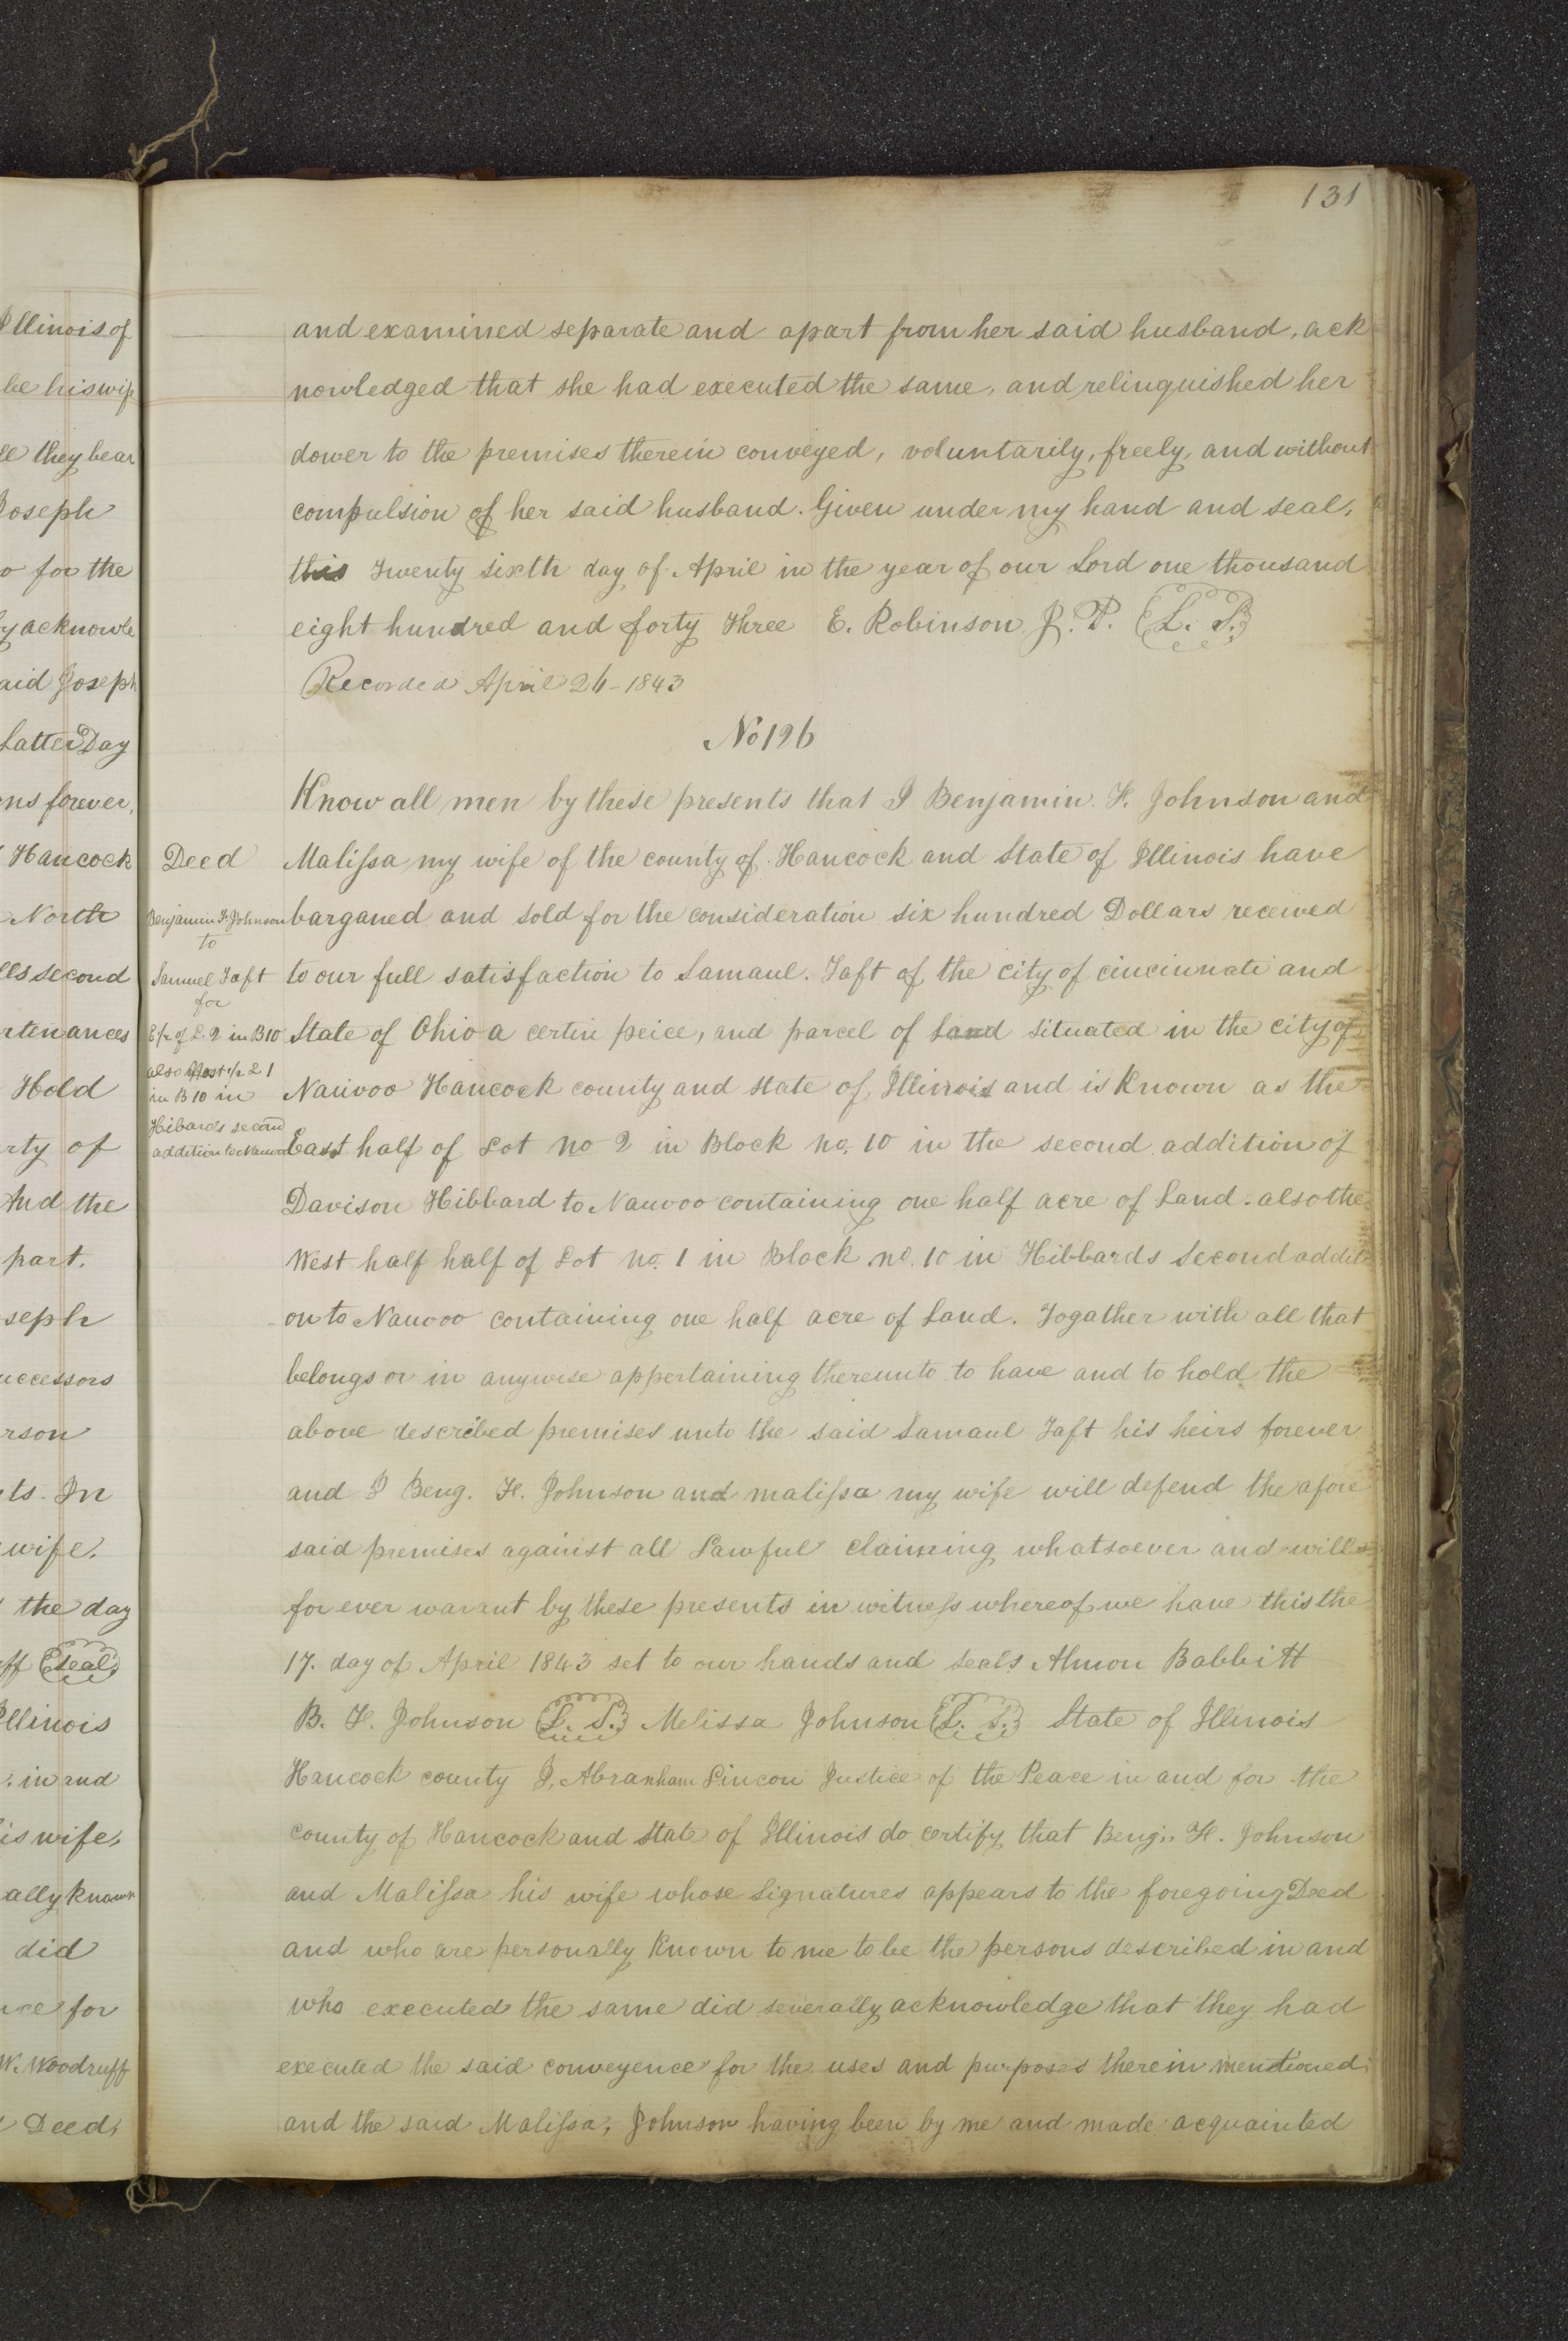 131
Illinois of
be his wife
ll they bear
Joseph
o for the
y acknowle
aid Joseph
Latter Day
ns forever,
Hancock
North
lls second
rtenances
Hold
rty of
And the
part.
seph
uccessors
rson
ts. In
wife.
the day
ff Seal
Illinois
. in and
is wife,
ally known
did
ce for
W. Woodruff
Deed,
and examined separate and apart from her said husband, ack
nowledged that she had executed the same, and relinquished her
dower to the premises therein conveyed, voluntarily, freely, and without
compulsion of her said husband. Given under my hand and seal,
this Twenty Sixth day of April in the year of our Lord one thousand
eight hundred and forty Three E. Robinson J. P. L. S.
Recorded April 26-1843
No 196
Know all men by these presents that I Benjamin. F. Johnson and
Malissa my wife of the county of Hancock and State of Illinois have
barganed and sold for the consideration six hundred Dollars received
to our full satisfaction to Samaul. Taft of the city of cincinnati and
State of Ohio a certin peice, and parcel of Land situated in the city of
Nauvoo Hancock county and state of Illinois and is Known as the
East half of Lot no 2 in Block no. 10 in the second addition of
Davison Hibbard to Nauvoo containing one half acre of Land: also the
West half half of Lot no. 1 in Block no. 10 in Hibbards Second additi
on to Nauvoo containing one half acre of Land. Togather with all that
belongs or in anywise appertaining thereunto to have and to hold the
above described premises unto the said Samaul Taft his heirs forever
and I Beng. F. Johnson and malissa my wife will defend the afore
said premises against all Lawful claiming whatsoever and will
for ever warant by these presents in witness whereof we have this the
17. day of April 1843 set to our hands and seals Almon Babbitt
B. F. Johnson L. S. Melissa Johnson L. S. State of Illinois
Hancock county I, Abranham Lincon Justice of the Peace in and for the
county of Hancock and State of Illinois do certify that Beng. F. Johnson
and Malissa his wife whose signatures appears to the foregoing Deed
and who are personally Known to me to be the persons described in and
who executed the same did severally acknowledge that they had
executed the said conveyence for the uses and purposes therein mentioned;
and the said Malissa, Johnson having been by me and made acquainted
Deed
Benjamin F. Johnson
to
Samuel Taft
for
E 1/2 of L. 2 in B 10
also West 1/2 L 1
in B 10 in
Hibards second
addition to Nauvoo